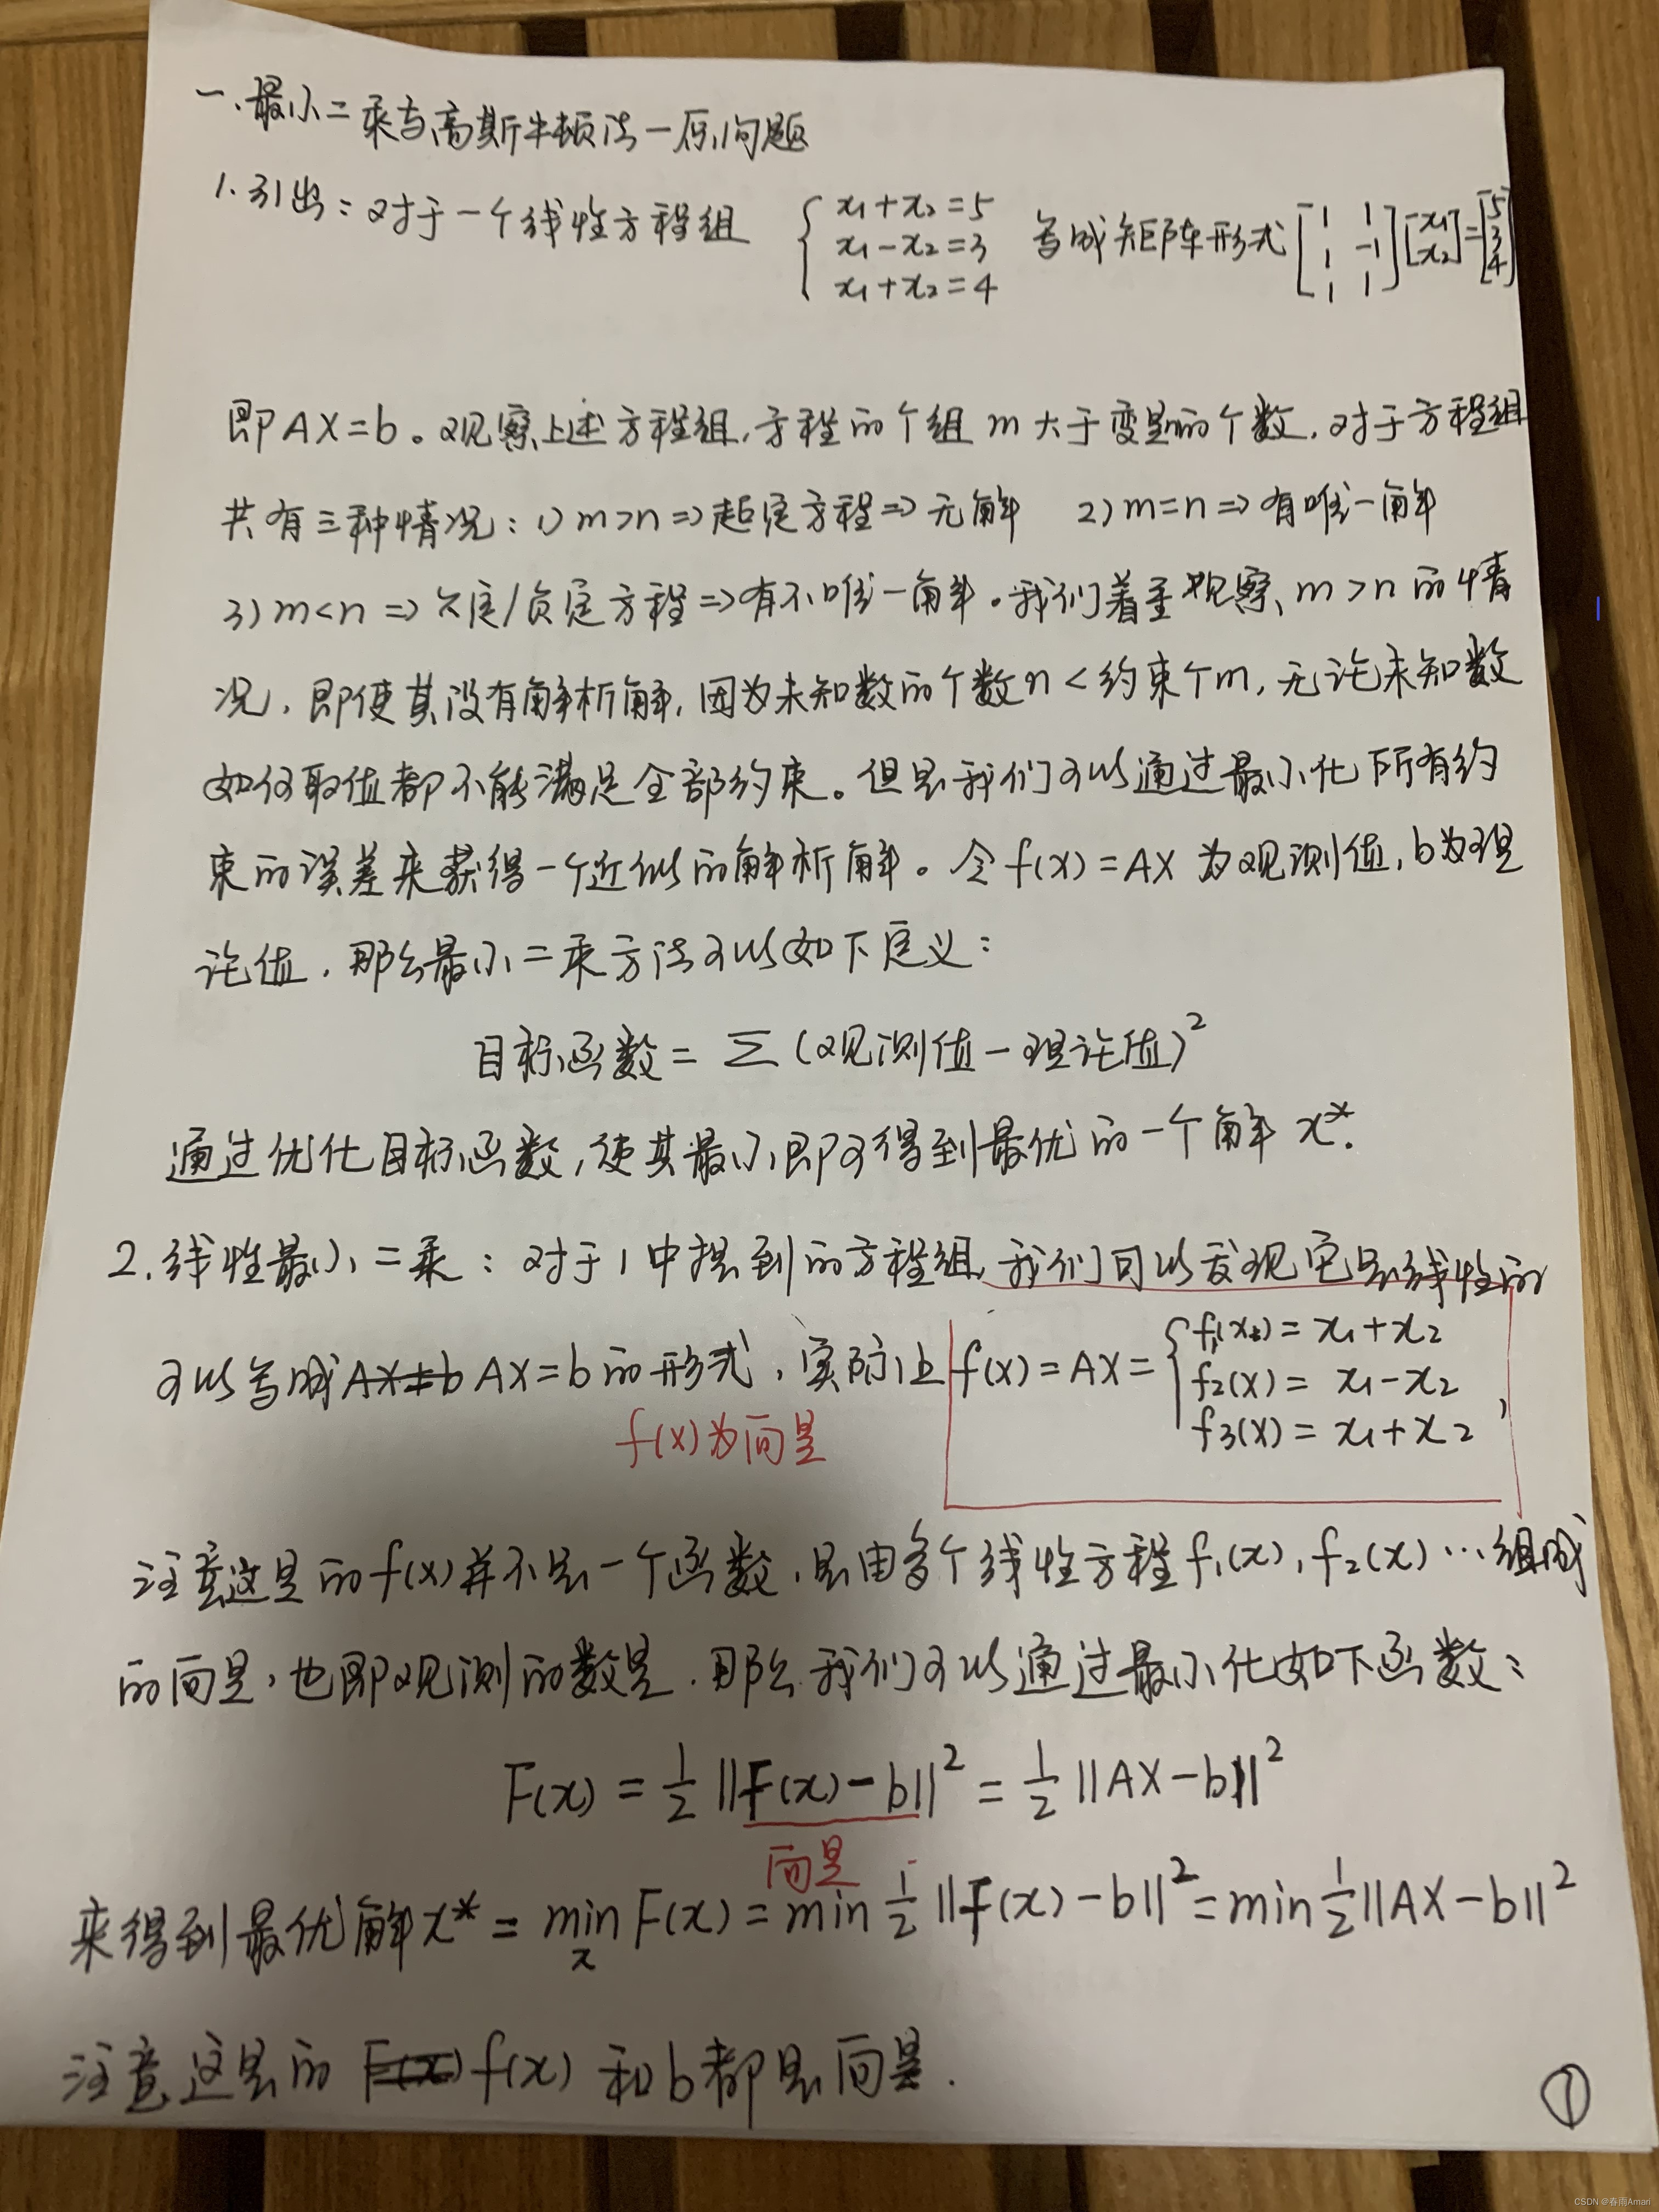 一.最小二乘与高斯牛顿法一原问题
1. 引出：对于一个线性方程组 { x₁+x₂=5 x₁-x₂=3 x₁+x₂=4 写成矩阵形式 [1 1 1 -1 1 1] [x₁ x₂] = [5 3 4]
即AX=b。观察上述方程组，方程的个组m大于变量的个数，对于方程组
共有三种情况：1) m>n ⇒ 超定方程 ⇒ 无解 2) m=n ⇒ 有唯一解
3) m<n ⇒ 欠定/负定方程 ⇒ 有不唯一解。我们着重观察 m>n 的情
况，即使其没有解析解，因为未知数的个数n<约束个m，无论未知数
如何取值都不能满足全部约束。但是我们可以通过最小化所有约
束的误差来获得一个近似的解析解。令f(x)=AX为观测值，b为理
论值，那么最小二乘方法可以如下定义：
目标函数 = Σ (观测值-理论值)²
通过优化目标函数，使其最小即可得到最优的一个解 x*.
2. 线性最小二乘：对于1中提到的方程组，我们可以发现它是线性的
可以写成AX=b AX=b的形式，实际上 f(x)=AX= { f₁(x)=x₁+x₂ f₂(x)=x₁-x₂ f₃(x)=x₁+x₂ ，
f(x)为向量
注意这里的f(x)并不是一个函数，是由多个线性方程f₁(x), f₂(x)…组成
的向量，也即观测的数量.那么我们可以通过最小化如下函数：
F(x) = ½ ||F(x)-b||² = ½ ||AX-b||²
向量
来得到最优解x* = min F(x) = min ½ ||F(x)-b||² = min ½ ||AX-b||²
x
注意这里的 F(x) f(x) 和b都是向量.
①
CSDN @春雨Aman